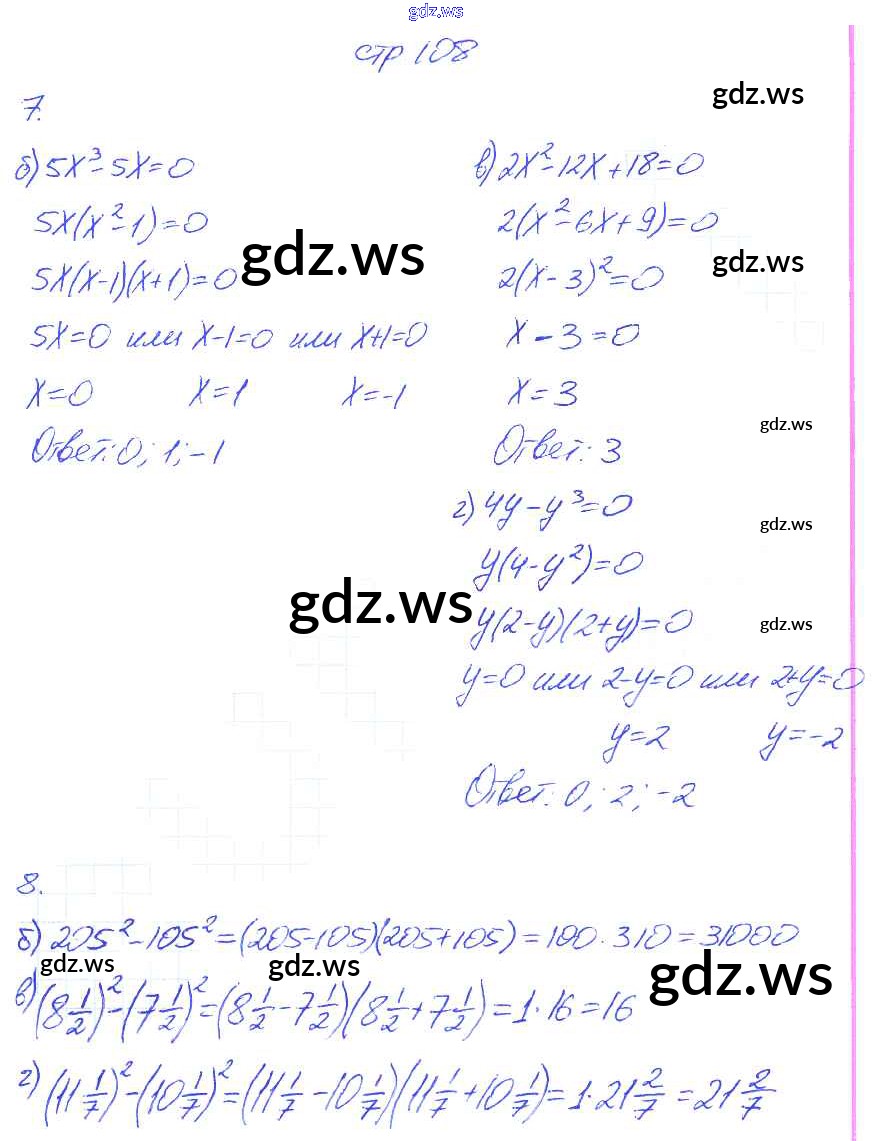 gdz.ws
стр 108
gdz.ws
7.
б) 5x³-5x=0
5x(x²-1)=0
5x(x-1)(x+1)=0
5x=0 или x-1=0 или x+1=0
x=0 x=1 x=-1
Ответ: 0; 1; -1
gdz.ws
в) 2x²-12x+18=0
2(x²-6x+9)=0
2(x-3)²=0
x-3=0
x=3
Ответ: 3
gdz.ws
gdz.ws
г) 4y-y³=0
y(4-y²)=0
y(2-y)(2+y)=0
y=0 или 2-y=0 или 2+y=0
y=2 y=-2
Ответ: 0; 2; -2
gdz.ws
gdz.ws
gdz.ws
8.
б) 205²-105²=(205-105)(205+105)=100·310=31000
gdz.ws gdz.ws gdz.ws
в) (8 1/2)²-(7 1/2)²=(8 1/2-7 1/2)(8 1/2+7 1/2)=1·16=16
г) (11 1/7)²-(10 1/7)²=(11 1/7-10 1/7)(11 1/7+10 1/7)=1·21 2/7=21 2/7